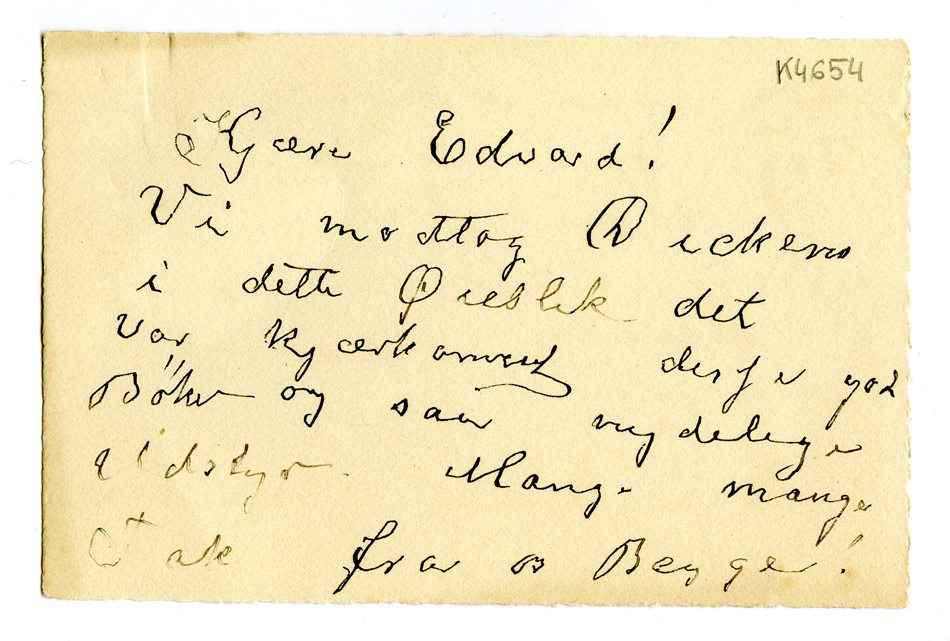 K4654
Kjære Edvard!
Vi modtog Dickens
i dette Øieblik det
var kjærkomment disse god
Bøker og saa nydelige
Udstyr. Mange mange
Tak fra os Begge!